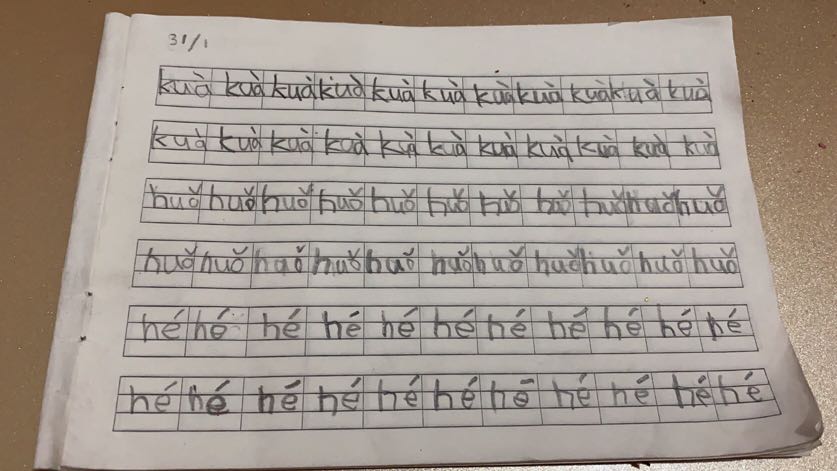 31/1
kuà kuà kuà kuà kuà kuà kuà kuà kuà kuà kuà
kuà kuà kuà kuà kuà kuà kuà kuà kuà kuà kuà
huǒ huǒ huǒ huǒ huǒ huǒ huǒ huǒ huǒ huǒ huǒ
huǒ huǒ huǒ huǒ huǒ huǒ huǒ huǒ huǒ huǒ huǒ
hé hé hé hé hé hé hé hé hé hé hé
hé hé hé hé hé hé hé hé hé hé hé